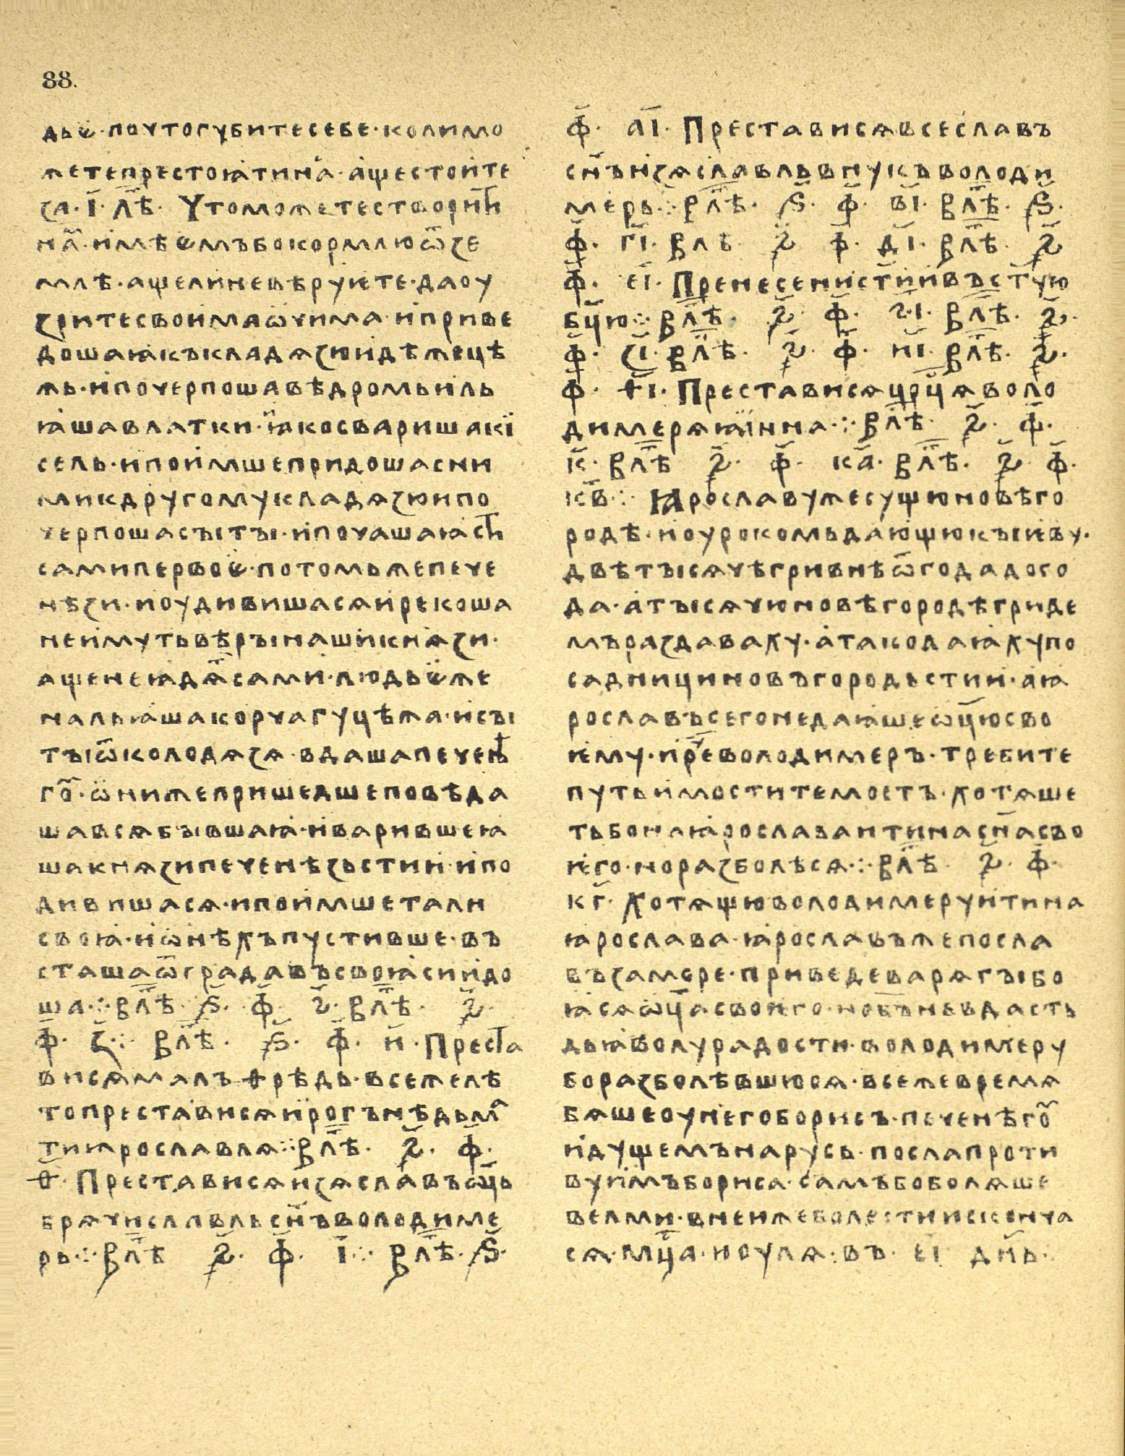 88.
дьѥ · почто губите себе · коли мо
жете престоꙗти на҇ · аще стоите
за · і҃ · лѣ҃ · что можете створит҇и
на҇ · имѣѥмъ бо кормлю ѿ зе
млѣ · аще ли не вѣруѥте · да оу
зрите своима ѡчима · и приве
доша ꙗ къ кладѧзю идѣже цѣ
жь · и почерпоша вѣдромь и ль
ꙗша в латки · ꙗко свариша кı
сель · и поимше придоша с ни
ми к другому кладѧзю и по
черпоша сыты · и почаша ꙗс҇ти
сами первоѥ · потомь же пече
нѣзи · и оудивишасѧ и рекоша
не имуть вѣры наши кнѧзи ·
аще не ꙗдѧт҇ сами · людьѥ же
нальꙗша корчагу цѣжа · и сы
ты ѿ колодѧзѧ · вдаша печенѣ
го҇ · ѡни же пришедше повѣда
ша всѧ бывшаꙗ · и варивше ꙗ
ша кнѧзи печенѣзьстии · и по
дивишасѧ · и поимше тали
своꙗ · и ѡнѣхъ пустивше · въ
сташа ѿ града въ своꙗси идо
ша · : · в лѣ҇ · ѕ҃ · ф҃ · ѕ҃ · в лѣ҇ · ѕ҃ ·
ф҃ · з҃ · : · в лѣ҇ · ѕ҃ · ф҃ · и҃ · Прест҇а
висѧ малъфрѣдь · в се же лѣ
то престависѧ и рогънѣдь м҃
ти ꙗрославлѧ · : · в лѣ҇ · ѕ҃ · ф҃ ·
ѳ҃ · Престависѧ изѧславъ ѡц҃ь
брѧчиславль сн҃ъ володиме
рь · : · в лѣ҇ ѕ҃ · ф҃ · і҃ · : · в лѣ҇ · ѕ҃ ·
ф҃ · аі҃ · Престависѧ всеславъ
сн҃ъ изѧславль внукъ володи
мерь · : · в лѣ҇ · ѕ҃ · ф҃ · ві҃ · в лѣ҇ · ѕ҃ ·
ф҃ · гі҃ · в лѣ҇ ѕ҃ ф҃ · ді҃ · в лѣ҇ ѕ҃
ф҃ · еі҃ · Пренесени ст҃ии въ ст҃ую
бц҃ю · : · в лѣ҇ · ѕ҃ · ф҃ · ѕ҃ · і҃ · в лѣ҇ · ѕ҃ ·
ф҃ · зі҃ · в лѣ҇ · ѕ҃ · ф҃ · иі҃ · в лѣ҇ · ѕ҃ ·
ф҃ · ѳі҃ · Престависѧ цр҃цѧ воло
димерѧꙗ анна · : · в лѣ҇ ѕ҃ · ф҃ ·
к҃ · в лѣ҇ ѕ҃ · ф҃ · ка҃ · в лѣ҇ · ѕ҃ · ф҃ ·
кв҃ · : · Ꙗрославу же сущю новѣго
родѣ · и оурокомь дающю кыѥву ·
двѣ тысѧчѣ гривнѣ ѿ года до го
да · а тысѧчю новѣгородѣ гриде
мъ раздаваху · а тако даꙗху по
садници новъгородьстии · а ꙗ
рославъ сего не даꙗше ѡц҃ю сво
ѥму · и реч҇ володимеръ · требите
путь и мостите мостъ · хотѧше
ть бо на ꙗрослава ити на сн҃а сво
ѥго · но разболѣсѧ · : · в лѣ҇ ѕ҃ · ф҃ ·
кг҃ · Хотѧщю володимеру ити на
ꙗрослава · ꙗрославъ же посла
въ за море · приведе варѧгы бо
ꙗсѧ ѡц҃а своѥго · но бъ҃ не вдасть
дьꙗволу радости · володимеру
бо разболѣвшюсѧ · в се же времѧ
бѧше оу него борисъ · печенѣго҇
идущемъ на русь · посла проти
ву имъ бориса · самъ бо болѧше
велми · в неи же болести и сконча
сѧ · мц҃а · иоулѧ · въ · еі҃ дн҃ь ·